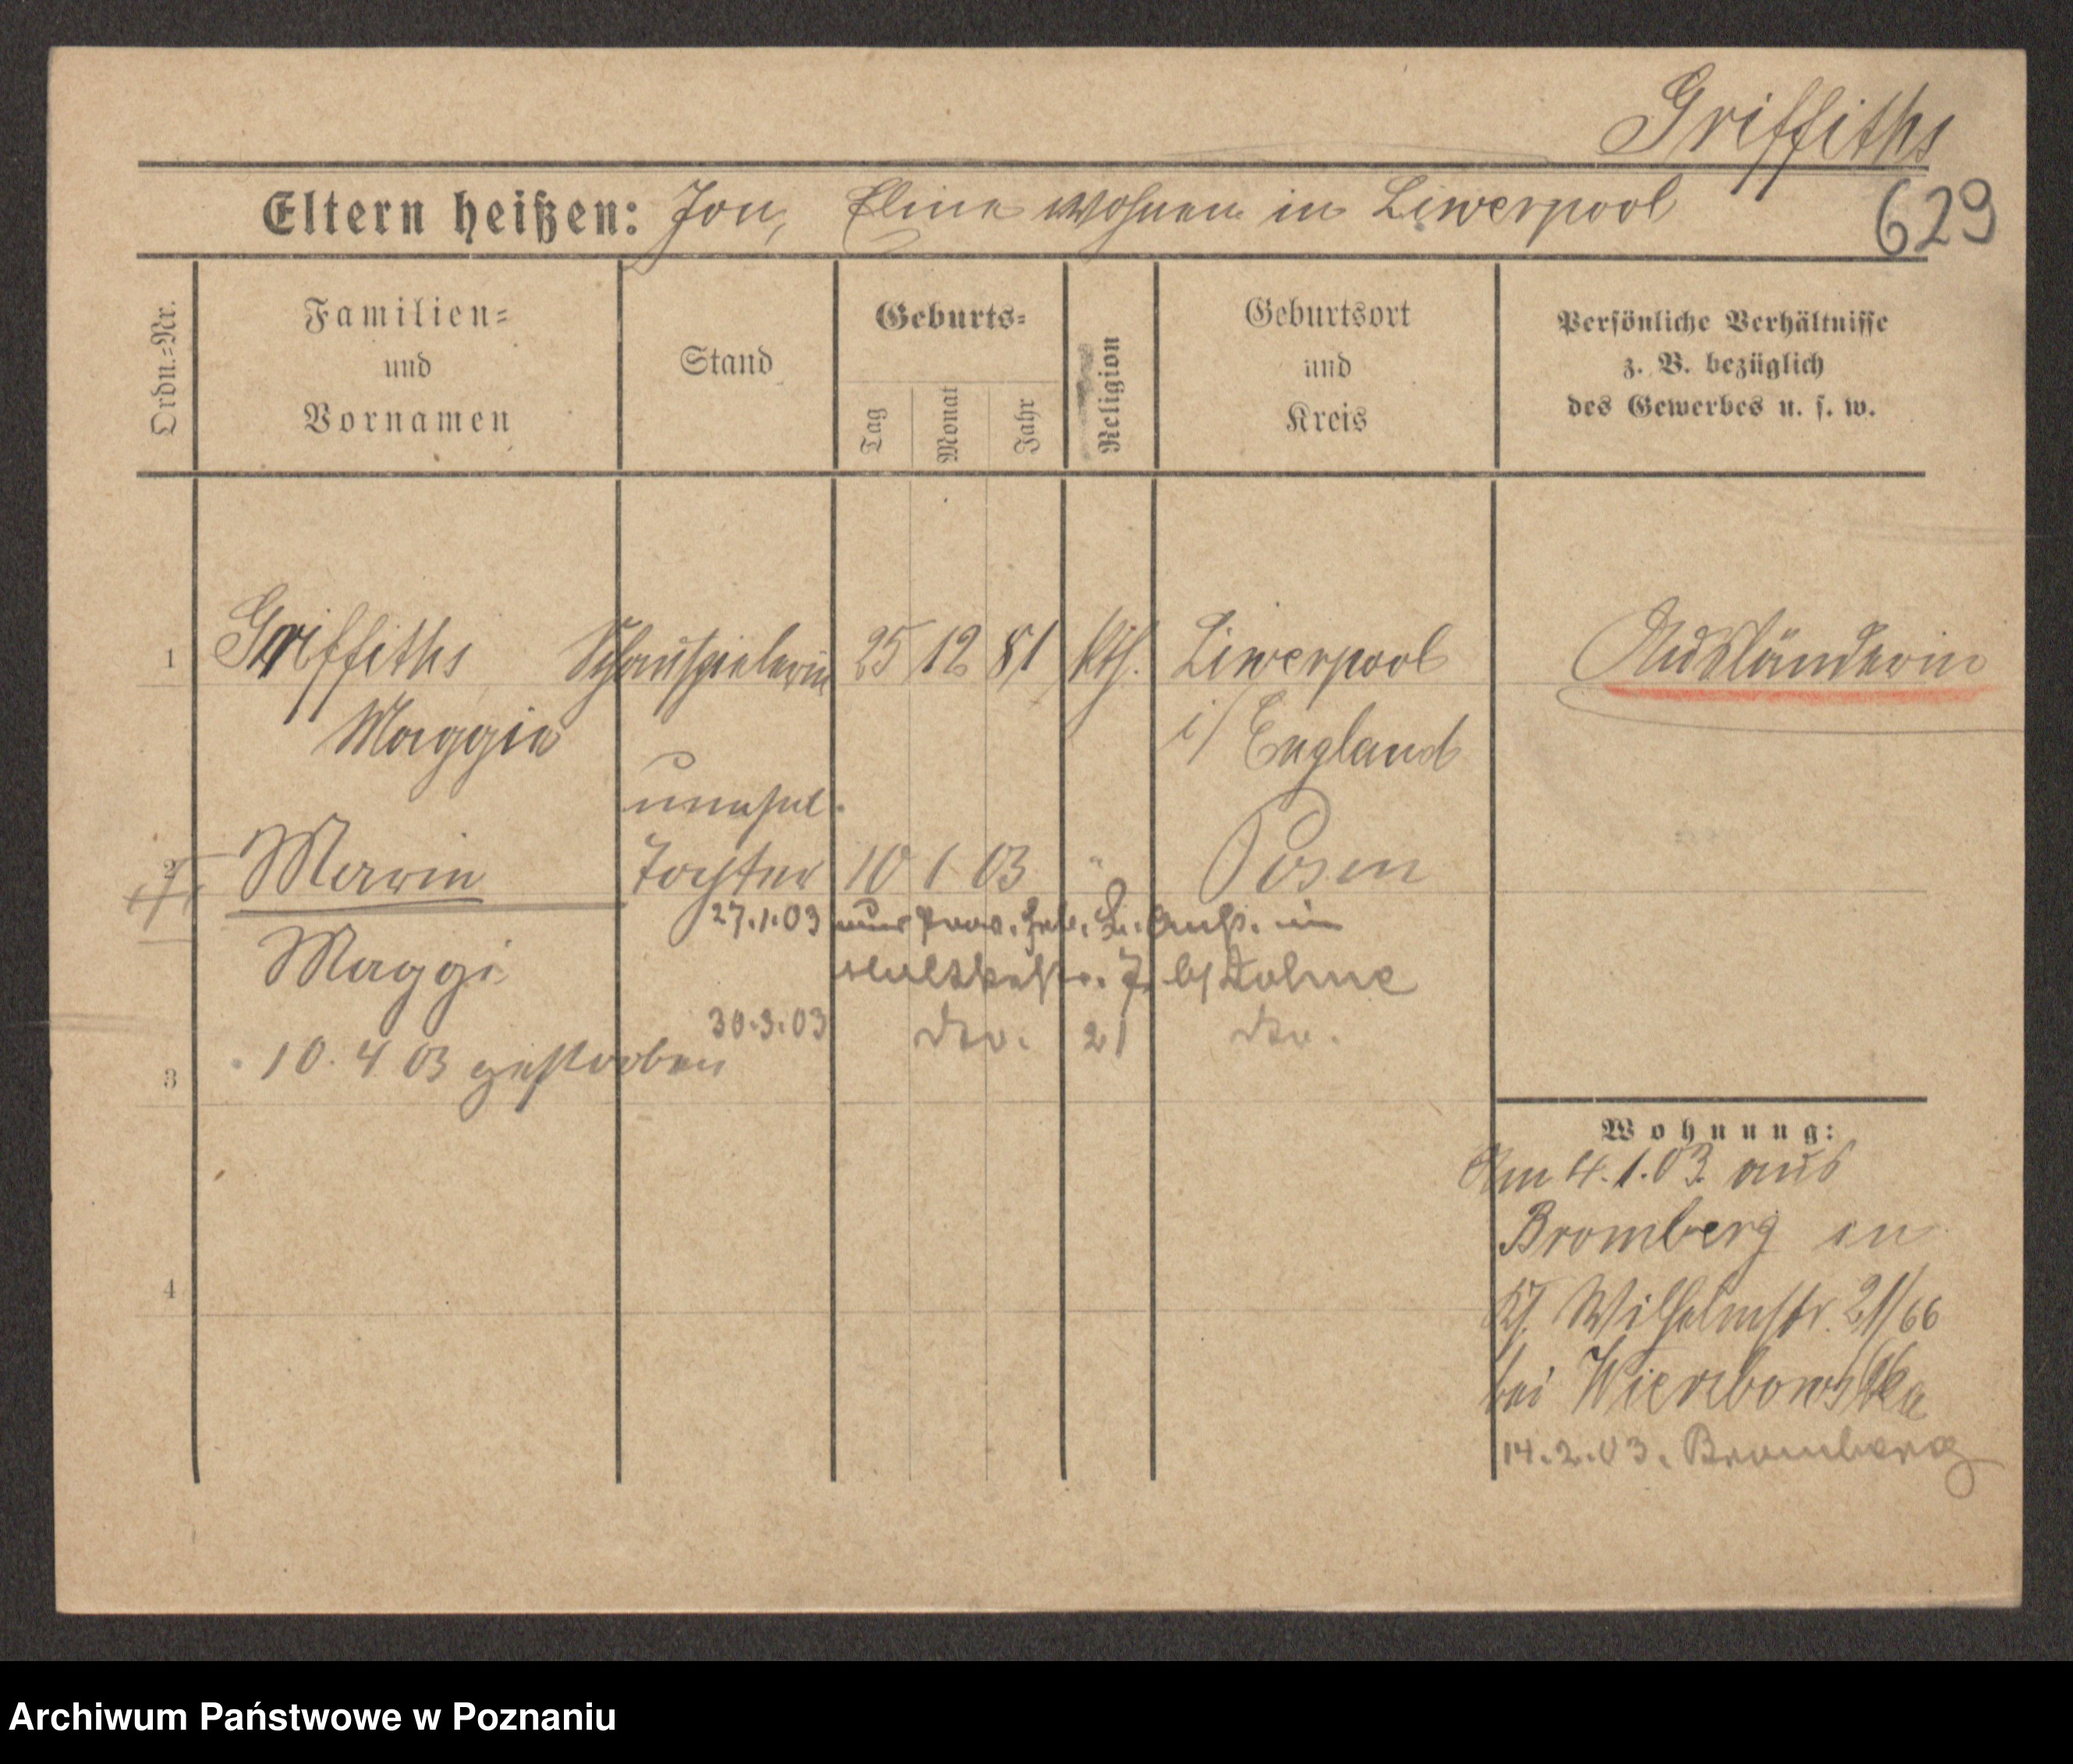 Griffiths
629
Eltern heißen: Jon, Eline wohnen in Liwerpool
Ordn.=Nr.
Familien=
und
Vornamen
Stand
Geburts=
Tag
Monat
Jahr
Religion
Geburtsort
und
Kreis
Persönliche Verhältnisse
z. B. bezüglich
des Gewerbes u. s. w.
1 Griffiths Schauspielerin 25 12 81 kth. Liwerpool Ausländerin
Maggie i/ England
unehel.
2 Marie Tochter 10 1 03 " Posen
27.1.03
Maggi 7 b/ Doline
30.3.03 dto. 21 dto.
3 10. 4 03 gestorben
4
Wohnung:
Am 4.1.03. aus
Bromberg in
Wilhelmstr. 21/66
bei Wierzbowska
14.2.03. Bromberg
Archiwum Państwowe w Poznaniu